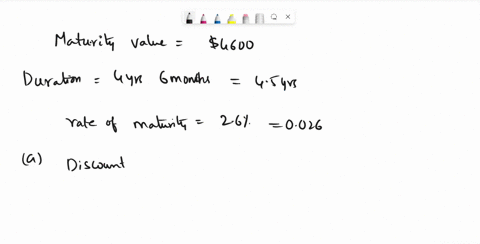 Maturity value = $4600
Duration = 4 yrs 6 months = 4.5 yrs
rate of maturity = 2.6% = 0.026
(a) Discount